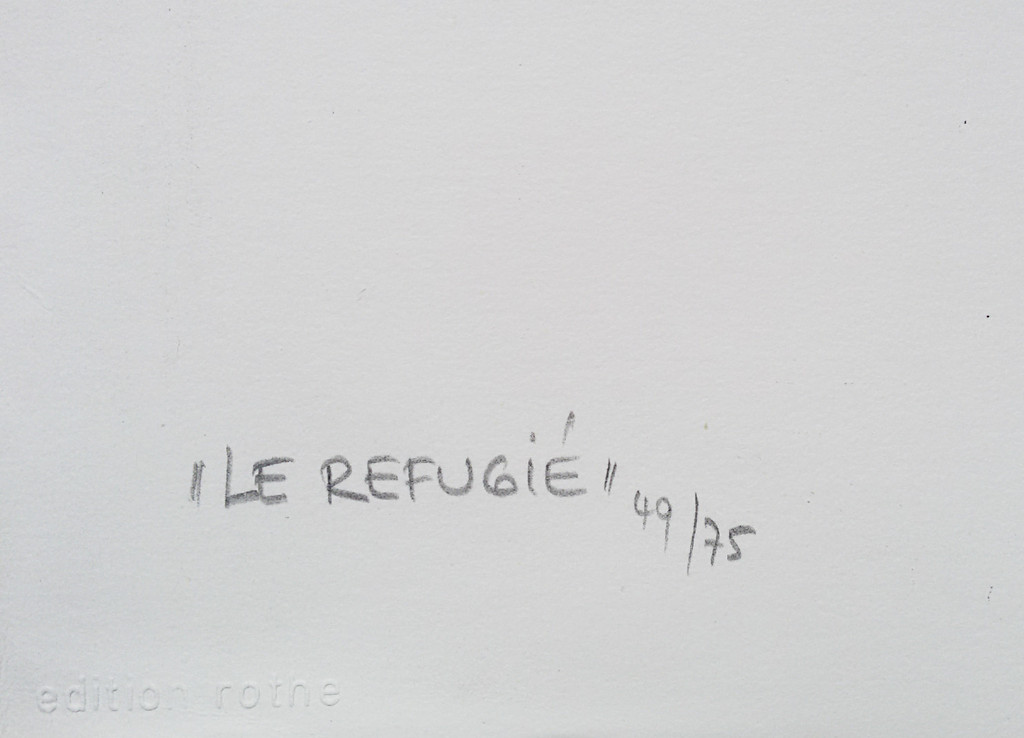 "LE REFUGIÉ" 49/75
edition rothe